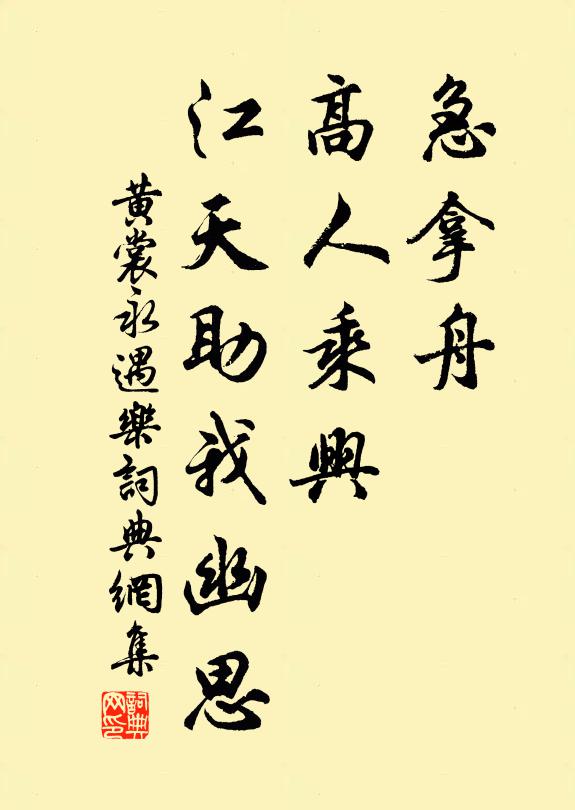 急拿舟
高人乘興
江天助我幽思
黄裳永遇樂詞典網集
詞典網印